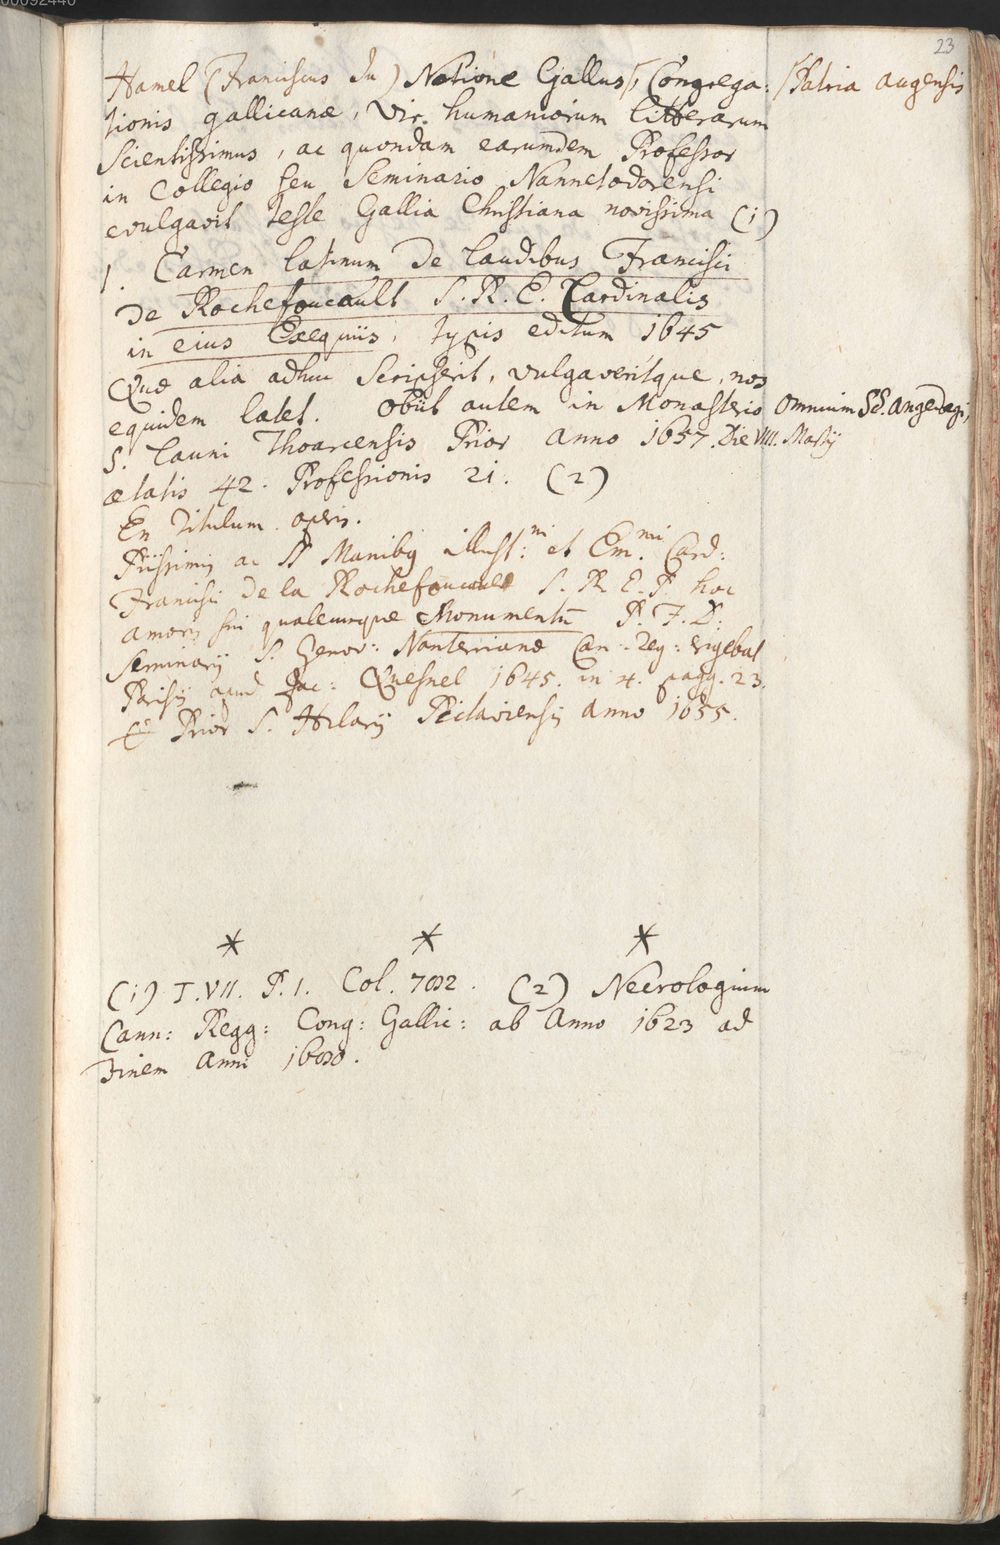 00092440
23
Hamel (Franciscus du) Natione Gallus /, Congrega: /Patria augensis
tionis gallicanæ, Vir humaniorum litterarum
Scientissimus, ac quondam earumdem Professor
in Collegio seu Seminario Nannetodorensi
evulgavit teste Gallia Christiana novissima (1)
1. Carmen latinum De laudibus Francisci
De Rochefoucault S. R. E. Cardinalis
in eius Exequiis, typis editum 1645
Quæ alia adhuc Scripserit, vulgaveritque, nos
equidem latet. Obiit autem in Monasterio Omnium SS. Angedægi,
S. Launi Thoarcensis Prior anno 1657. Die VIII. Martij
ætatis 42. Professionis 21. (2)
En titulum operis.
Piissimis ac SS Manibus illust:mi et Em.mi Card:
Francisci De la Rochefoucault S. R. E. P. hoc
amoris sui qualecunque Monumentũ P. F. D:
Seminarij S. Genov: Nanterrianæ Can. Reg: erigebat
Parisijs apud Jac: Quesnel 1645. in 4. pagg. 23.
Prior S. Hilarij Pictaviensis anno 1655.
* * *
(1) T. VII. P. 1. Col. 782. (2) Necrologium
Cann: Regg: Cong: Gallic: ab Anno 1623 ad
Finem Anni 1680.